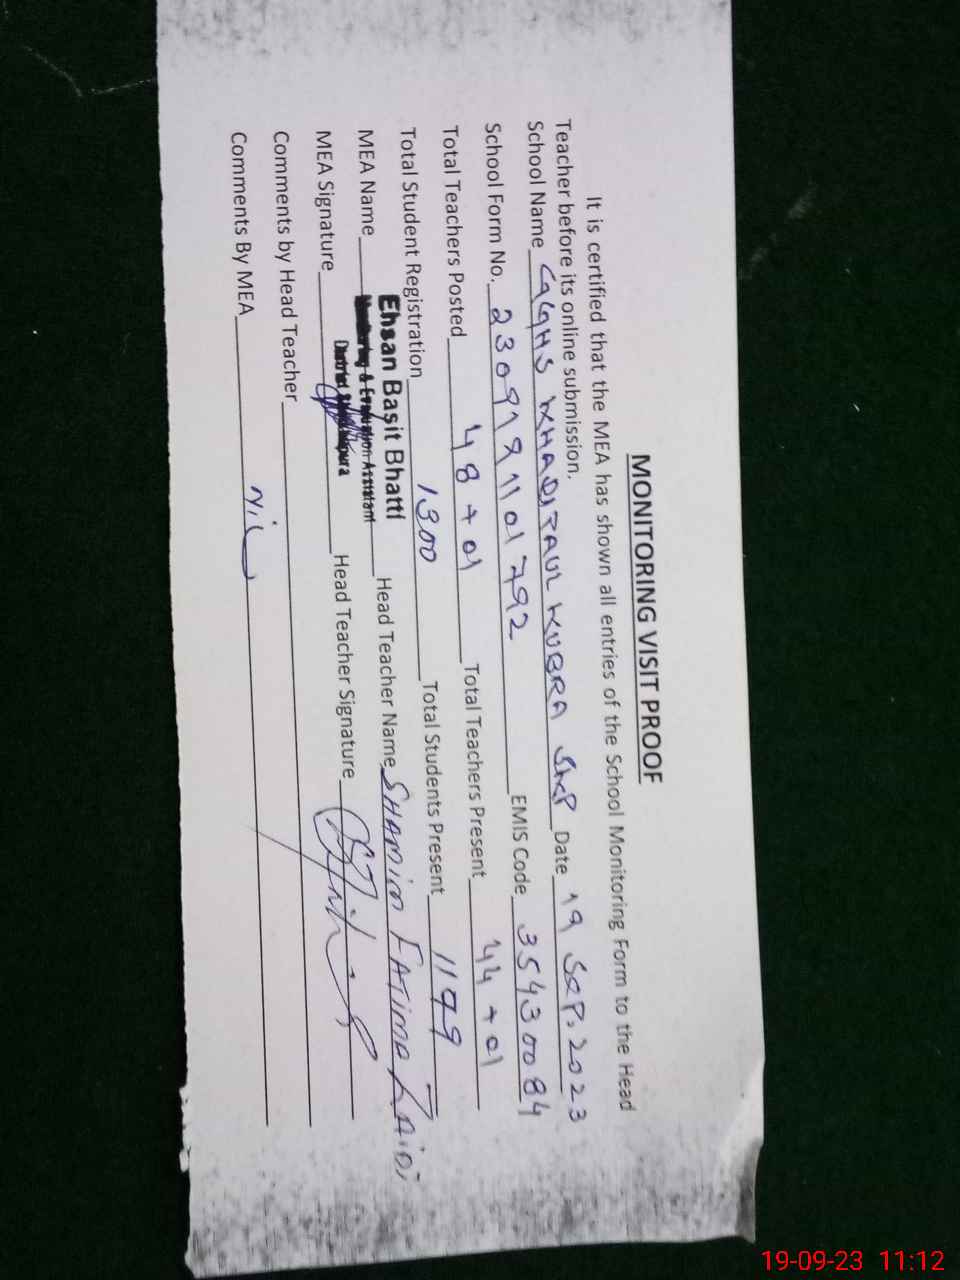 MONITORING VISIT PROOF
It is certified that the MEA has shown all entries of the School Monitoring Form to the Head
Teacher before its online submission.
School Name GGHS KHADIJAUL KUBRA SKP Date 19 SEP. 2023
School Form No. 2309191101792 EMIS Code 35430084
Total Teachers Posted 48 + 01 Total Teachers Present 44 + 01
Total Student Registration 1300 Total Students Present 1199
MEA Name Ehsan Basit Bhatti Head Teacher Name SHAMIM FATIMA
Monitoring & Evaluation Assistant
District Sheikhupura
MEA Signature Head Teacher Signature
Comments by Head Teacher
Comments By MEA Nil
19-09-23 11:12